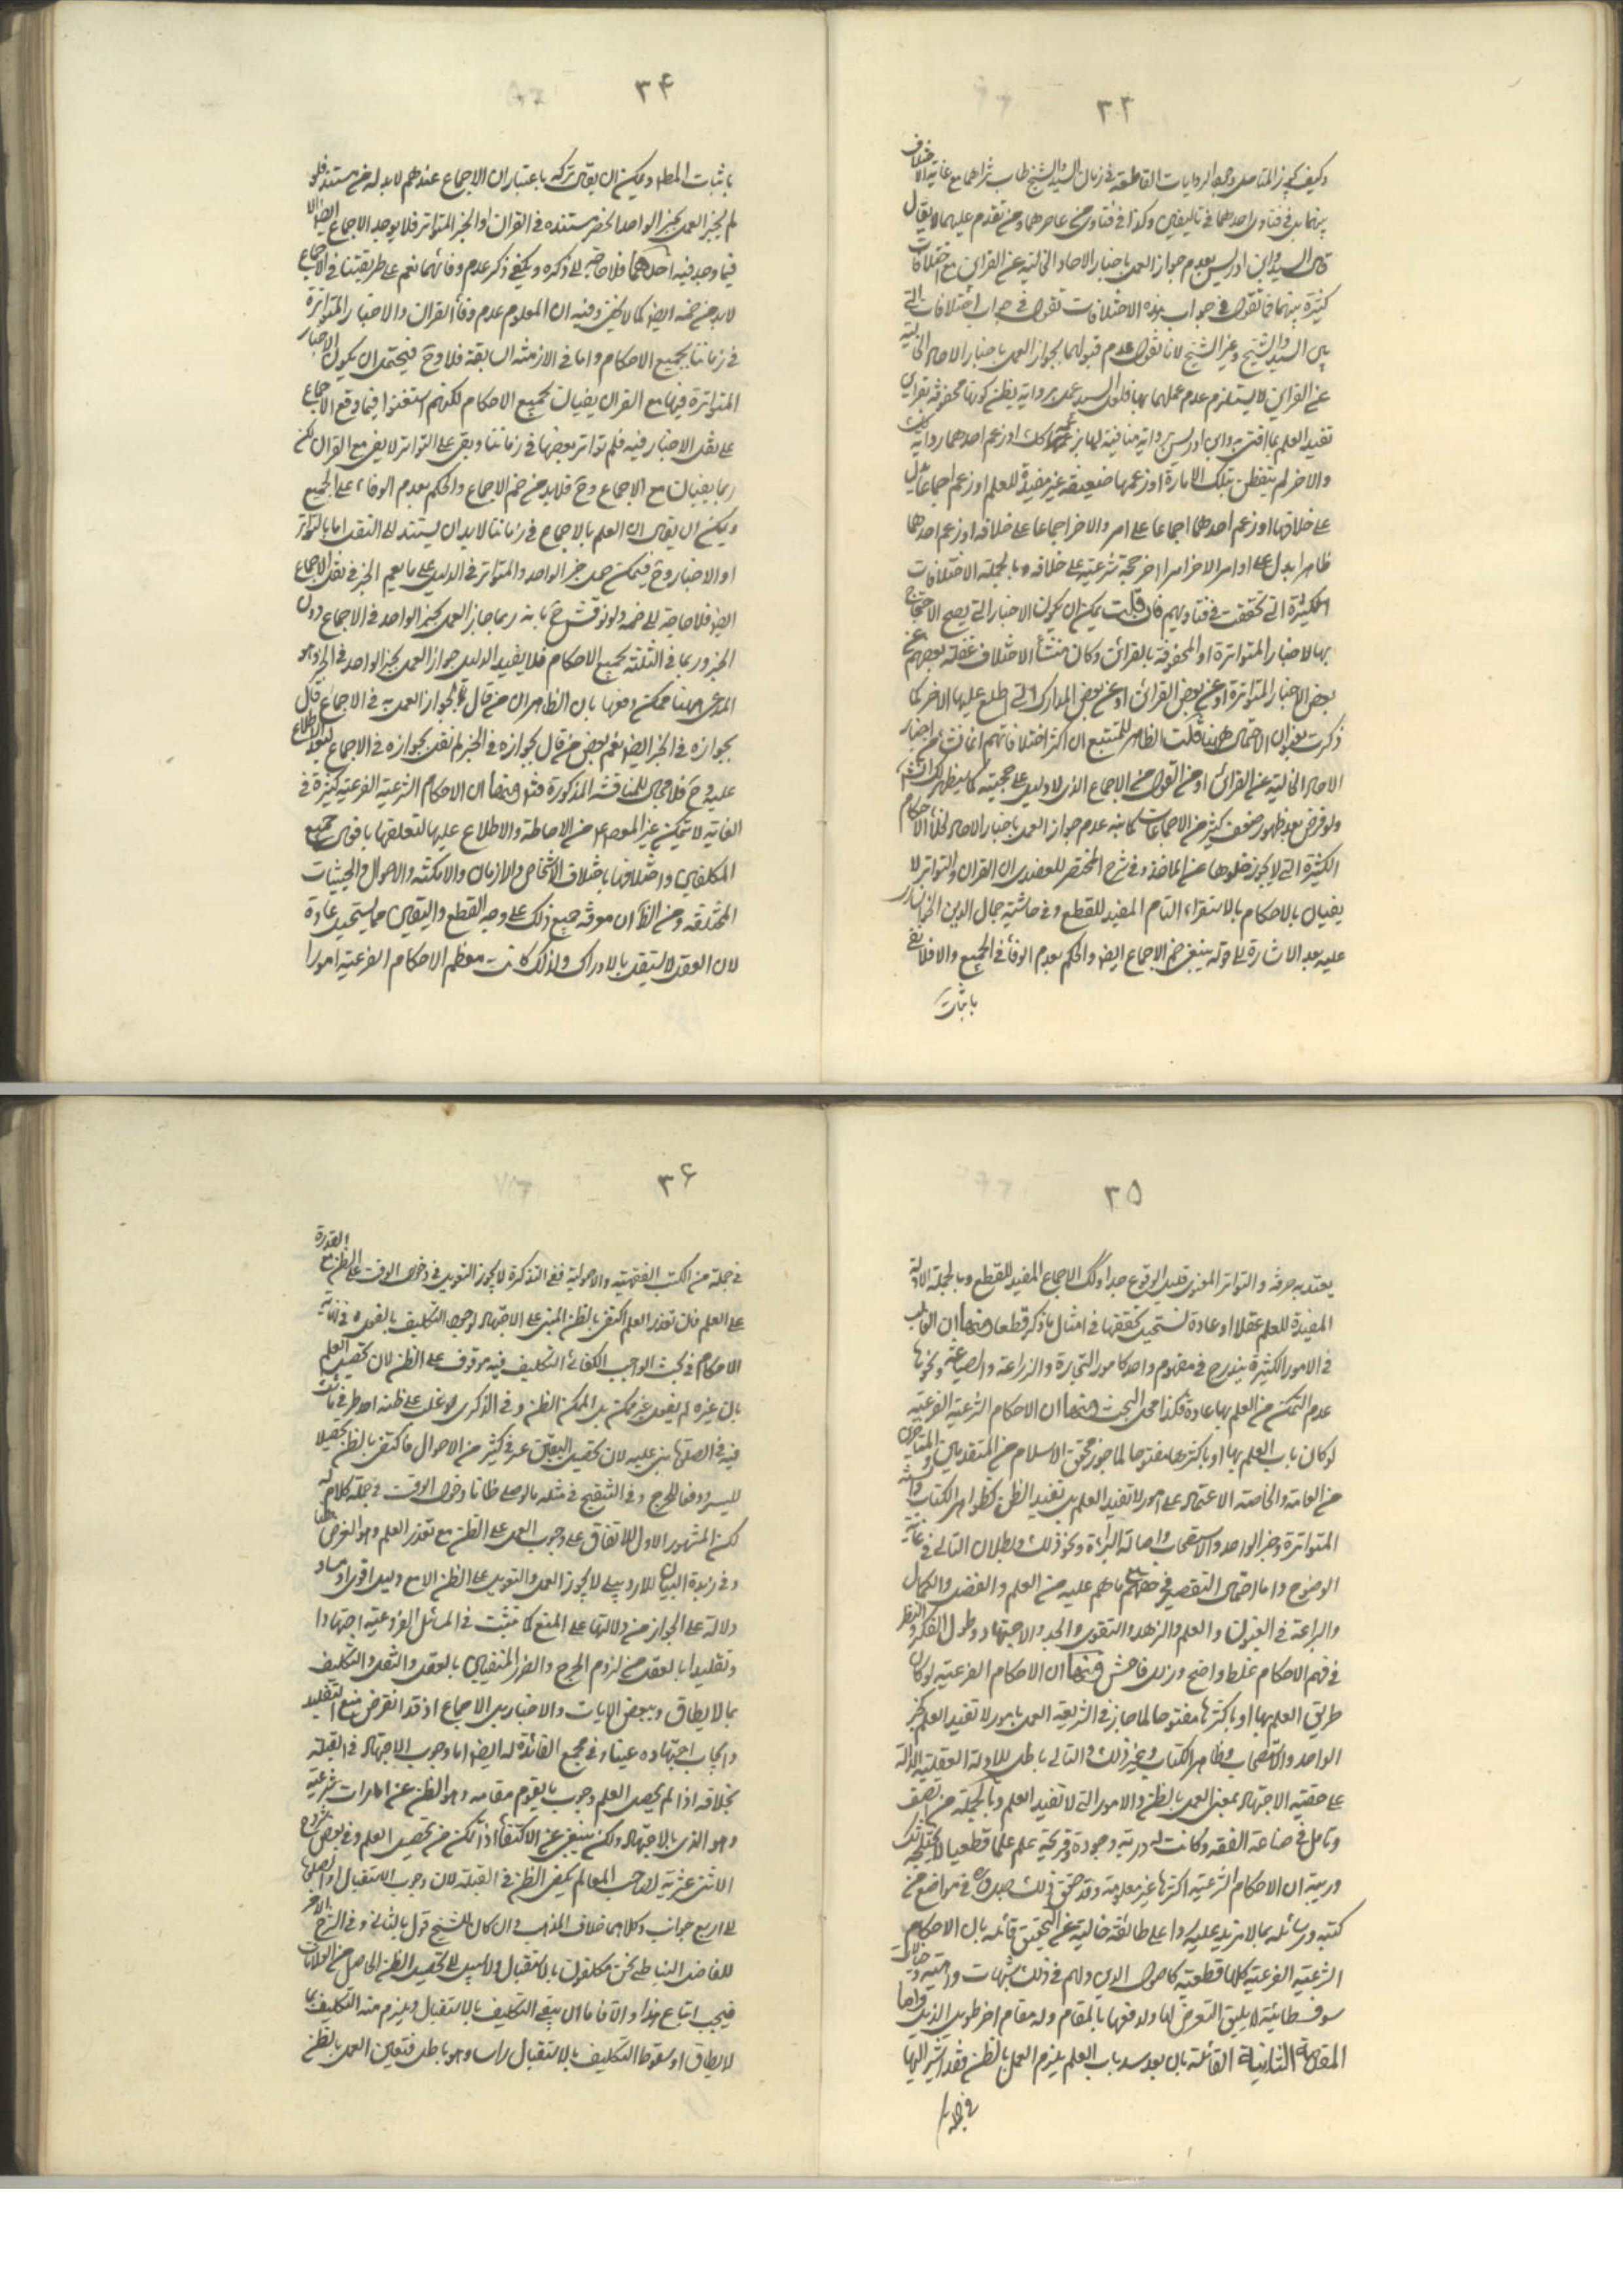 ٣٣
وكيف يجوز للمتأمل وجود الروايات القاطعة في زمان السيد والشيخ طاب ثراهما مع غاية الاختلاف
بينهما بل في فتاوى احدهما في تاليفين وكذا في فتاوى من عاصرهما ومن تقدم عليهما لا يقال
قال السيد وابن ادريس بعدم جواز العمل باخبار الاحاد الخالية عن القراين مع اختلافات
كثيرة بينهما فما تقول في جواب هذه الاختلافات نقول في جواب اختلافات التي
بين السيد والشيخ وغير الشيخ لانا نقول عدم قبولهما بجواز العمل باخبار الاحاد الخالية
عن القراين لا يستلزم عدم عملهما بها فلعل السيد عمل برواية يظن كونها محفوفة بقراين
تفيد العلم بما افتى به وابن ادريس رواية منافية لها بزعمه كك او زعم احدهما رواية كك
والاخر لم يتفطن بتلك الامارة او زعمها ضعيفة غير مفيدة للعلم او زعم اجماعا دل
على خلافها او زعم احدهما اجماعا على امر والاخر اجماعا على خلافه او زعم احدهما
ظاهرا يدل على امر والاخر امرا اخر حجة شرعية على خلافه وبالجملة الاختلافات
الكثيرة التي تحققت في فتاويهم فان قلت يمكن ان يكون الاخبار التي يصح الاحتجاج
بها الاخبار المتواترة او المحفوفة بالقرائن وكان منشأ الاختلاف غفلة بعضهم عن
بعض الاخبار المتواترة او عن بعض القرائن او عن بعض المدارك التي اطلع عليها الاخر كما
ذكرت بعنوان الاحتمال ههنا قلت الظاهر للمتتبع ان اكثر اختلافاتهم انما نشأ من اخبار
الاحاد الخالية عن القرائن او من القول من الاجماع الذي لا دليل على حجيته كما يظهر لك
ولو فرض بعد ظهور ضعف كثير من الاجماعات كما نبه عدم جواز العمل باخبار الاحاد لخلا الاحكام
الكثيرة التي لا يجوز خلوها عن الماخذ وفي شرح المختصر للعضدي ان القران والتواتر لا
يفيان بالاحكام بالاستقراء التام المفيد للقطع وفي حاشية جمال الدين الخوانساري
عليه بعد الاشارة الى قوله ينبغي ضم الاجماع ايضا والحكم بعدم الوفاء في الجميع والا فلا يفي
باثبات
٣۴
باثبات المط ويمكن ان يقال تركه باعتبار ان الاجماع عندهم لابد له من مستند فلو
لم يجز العمل بخبر الواحد انحصر مستنده في القران او الخبر المتواتر فلا يوجد الاجماع ايضا الا
فيما وجد فيه احدهما فلا حاجة الى ذكره ويكفي ذكر عدم وفائهما نعم على طريقتنا في الاجماع
لابد من ضمه ايضا كما لا يخفى وفيه ان المعلوم عدم وفاء القران والاخبار المتواترة
في زماننا بجميع الاحكام واما في الازمنة السابقة فلا وح فيحتمل ان يكون الاخبار
المتواترة فيها مع القران يفيان بجميع الاحكام لكنهم استغنوا فيما وقع الاجماع
على نقل الاخبار فيه فلم تواتر بعضها في زماننا وبقي على التواتر لا يفي مع القران لكن
ربما يفيان مع الاجماع وح فلابد من ضم الاجماع والحكم بعدم الوفاء على الجميع
ويمكن ان يقال ان العلم بالاجماع في زماننا لابد ان يستند الى النقل اما بالتواتر
او الاخبار وح فيمكن حمل خبر الواحد والمتواتر في الدليل على ما يعم الخبر في نقل الاجماع
ايضا فلا حاجة الى ضمه ولو نوقش ح بانه ربما جاز العمل بخبر الواحد في الاجماع دون
الخبر وربما في الثلثة بجميع الاحكام فلا يفيد الدليل جواز العمل بخبر الواحد في الخبر وهو
المدعى ههنا فيمكن دفعها بان الظاهر ان من قال بجواز العمل به في الاجماع قال
بجوازه في الخبر ايضا نعم بعض من قال بجوازه في الخبر لم نقل بجوازه في الاجماع لبعد الاطلاع
عليه وح فلا مجال للمناقشة المذكورة فتدبر ومنها ان الاحكام الشرعية الفرعية كثيرة في
الغاية لا يتمكن غير المعصوم من الاحاطة والاطلاع عليها لتعلقها بافعال جميع
المكلفين واختلافها باختلاف الاشخاص والازمان والامكنة والاحوال والحيثيات
المختلفة ومن الظ ان معرفة جميع ذلك على وجه القطع واليقين مما يستحيل عادة
لان العقل لا يستقل بالادراك ولذلك كانت معظم الاحكام الفرعية امورا
٣۵
يعتد به حرفة والتواتر المعنوي قليل الوقوع جدا وكك الاجماع المفيد للقطع وبالجملة الادلة
المفيدة للعلم عقلا او عادة يستحيل تحققها في امثال ما ذكر قطعا ومنها ان الغالب
في الامور الكثيرة يندرج في مفهوم واحد كامور التجارة والزراعة والصياغة ونحوها
عدم التمكن من العلم بها عادة فكذا محل البحث ومنها ان الاحكام الشرعية الفرعية
لو كان باب العلم بها او باكثرها مفتوحا لما جوز محققو الاسلام من المتقدمين والمتاخرين
من العامة والخاصة الاعتماد على امور لا تفيد العلم بل تفيد الظن كظواهر الكتاب والسنة
المتواترة وخبر الواحد والاستصحاب واصالة البراءة ونحو ذلك وبطلان التالي في غاية
الوضوح واما احتمال التقصير في حقهم مع ما هم عليه من العلم والفضل والكمال
والبراعة في الفنون والعلم والزهد والتقوى والجد والاجتهاد وطول الفكر والنظر
في فهم الاحكام غلط واضح وزلل فاحش ومنها ان الاحكام الفرعية لو كان
طريق العلم بها او باكثرها مفتوحا لما جاز في الشريعة العمل بامور لا تفيد العلم كخبر
الواحد والاستصحاب وظاهر الكتاب وغير ذلك والتالي باطل للادلة العقلية الدالة
على حقية الاجتهاد بمعنى العمل بالظن والامور التي لا تفيد العلم وبالجملة من انصف
وتامل في صناعة الفقه وكانت له دربة وجودة قريحة علم علما قطعيا لا يختلجه شك
وريبة ان الاحكام الشرعية اكثرها غير معلومة وقد حقق ذلك جدي في مواضع من
كتبه ورسائله بما لا مزيد عليه ردا على طائفة خالية عن التحقيق قائلة بان الاحكام
الشرعية الفرعية كلها قطعية كاصول الدين ولهم في ذلك شبهات واهية وخيالات
سوفسطائية لا يليق التعرض لها ولدفعها بالمقام وله مقام اخر طويل الذيل واما
المقدمة الثانية القائلة بان بعد سد باب العلم يلزم العمل بالظن فقد اشير اليها
في جملة
٣۶
في جملة من الكتب الفقهية والاصولية ففي التذكرة لا يجوز التعويل في دخول الوقت على الظن مع القدرة
على العلم فان تعذر العلم اكتفى بالظن المبني على الاجتهاد لوجوب التكليف بالفعل وفي نهاية
الاحكام في بحث الواجب الكفائي التكليف فيه موقوف على الظن لان تحصيل العلم
بان غيره لم يفعل غير ممكن بل الممكن الظن وفي الذكرى لو غلب على ظنه احد طرفي ما شك
فيه في الصلوة بنى عليه لان تحصيل اليقين عسر في كثير من الاحوال فاكتفى بالظن تحصيلا
لليسر ودفعا للحرج وفي التنقيح في مسئلة ما لو صلى ظانا دخول الوقت في جملة كلام له
لكن المشهور الاول للاتفاق على وجوب العمل على الظن مع تعذر العلم وهو الغرض هنا
وفي زبدة البيان للاردبيلي لا يجوز العمل والتعويل على الظن الا مع دليل اقوى او مساو
دلالة على الجواز من دلالتها على المنع كما تثبت في المسائل الفروعية اجتهادا
وتقليدا بالعقل من لزوم الحرج والضرر المنفيين بالعقل والنقل والتكليف
بما لا يطاق وببعض الايات والاخبار بل الاجماع اذ قد انقرض منع التقليد
وايجاب اجتهاده عينا وفي مجمع الفائدة له ايضا اما وجوب الاجتهاد في القبلة
بخلافه اذا لم يحصل العلم وجوب ما يقوم مقامه وهو الظن عن امارات شرعية
وهو الذي بالاجتهاد ولكن ينبغي عن الاكتفاء اذا تمكن من تحصيل العلم وفي بعض شروح
الاثنى عشرية لصاحب المعالم يكفي الظن في القبلة لان وجوب الاستقبال او الصلوة
الى اربع جوانب وكلاهما خلاف المذهب وان كان للشيخ قول بالثاني وفي الشرح الاخر
للفاضل النباطي نحن مكلفون بالاستقبال ولا سبيل الى تحصيل الظن الحاصل من العلامات
فيجب اتباع هذا والا فاما ان يبقى التكليف بالاستقبال ويلزم منه التكليف بما
لا يطاق او سقوط التكليف بالاستقبال راسا وهو باطل فتعين العمل بالظن